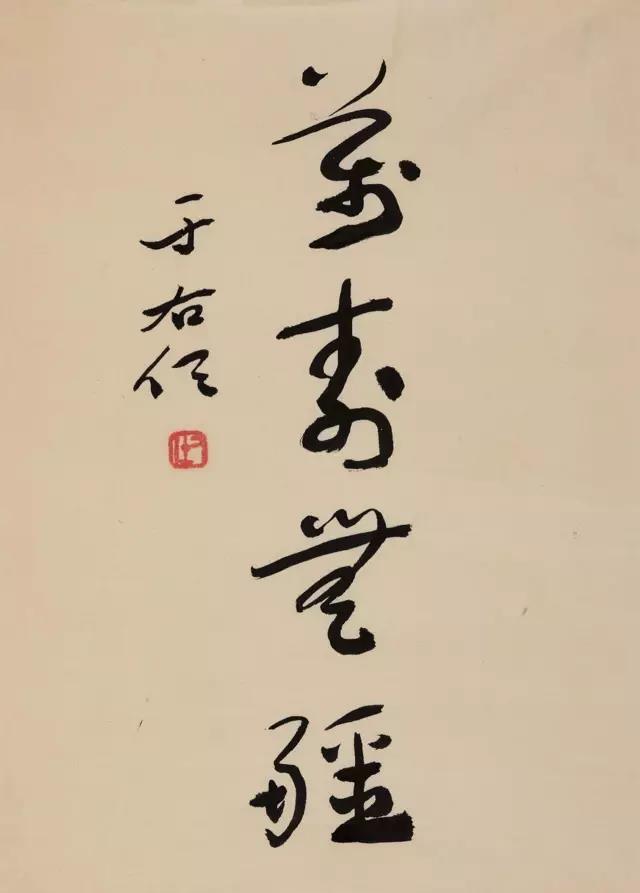 萬壽無疆
于右任